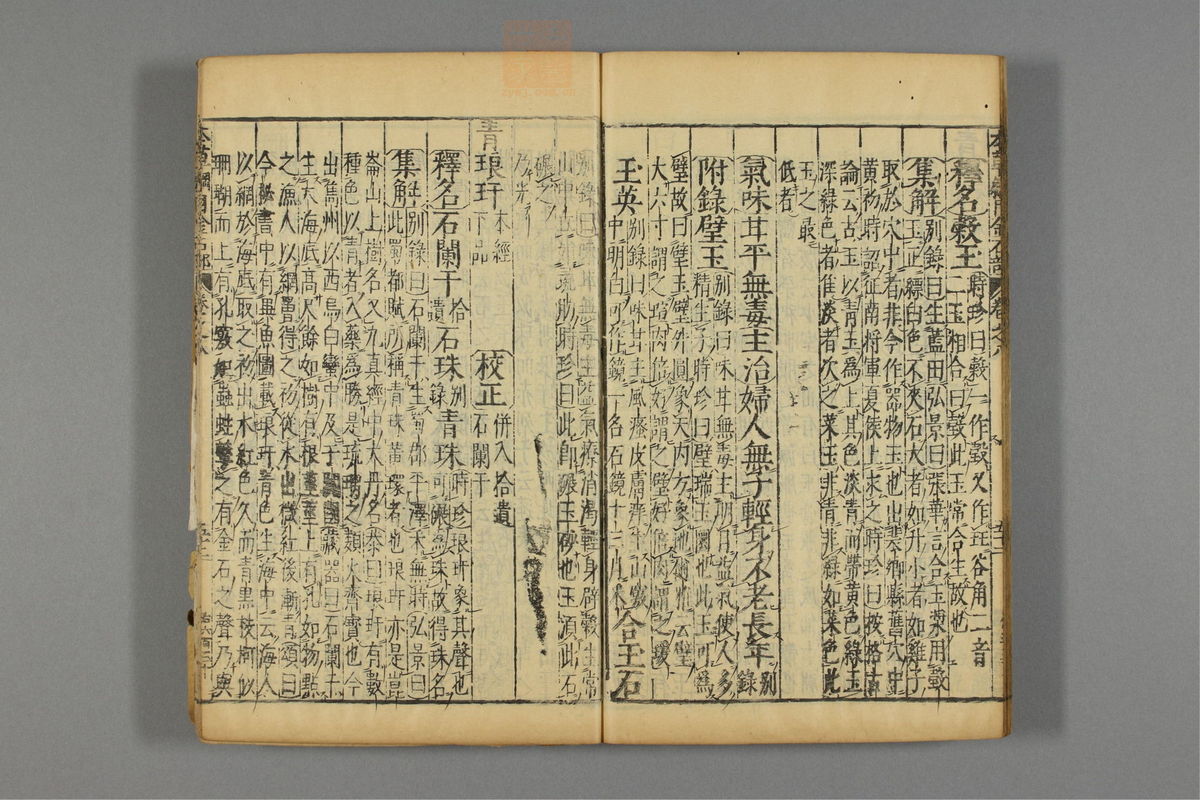 釋名瑴玉時珍曰瑴一作瑴又作玨谷角二音
二玉相合曰瑴此玉常合生故也
集解別錄曰生藍田弘景曰張華言合玉漿用瑴
玉正縹白色不夾石大者如升小者如雞子
取於穴中者非今作器物玉也出襄鄉縣舊穴中
黃初時詔征南將軍夏侯上求之時珍曰按格古
論云古玉以青玉為上其色淡青而帶黃色綠玉
深綠色者佳淡者次之菜玉非青非綠如菜色此
玉之最
低者
氣味甘平無毒主治婦人無子輕身不老長年別錄
附錄璧玉別錄曰味甘無毒主明目益氣使人多
精生子時珍曰璧瑞玉圜也此玉可為
璧故曰璧玉璧外圓象天內方象地爾雅云璧
大六寸謂之瑄肉倍好謂之璧好倍肉謂之瑗
玉英別錄曰味甘主風瘙皮膚痒生山竅
中明白可作鏡一名石鏡十二月采合玉石
別錄曰味甘無毒主益氣療消渴輕身辟穀生常
山中丘如彘肪時珍曰此即碾玉砂也玉須此石
碾之
乃光
青琅玕本經下品校正併入拾遺石闌干
釋名石闌干拾遺石珠別錄青珠時珍曰琅玕象其聲也
可碾為珠故得珠名
集解別錄曰石闌干生蜀郡平澤采無時弘景曰
此蜀都賦所稱青珠黃環者也琅玕亦是崑
崙山上樹名又九真經中大丹名恭曰琅玕有數
種色以青者入藥為勝是琉璃之類火齊寶也今
出嶲州以西烏白蠻中及于闐國藏器曰石闌干
生大海底高尺餘如樹有根莖莖上有孔如物點
之漁人以網罟得之初從水出微紅後漸青頌曰
今秘書中有異魚圖載琅玕青色生海中云海人
以網於海底取之初出水紅色久而青黑枝柯似
珊瑚而上有孔竅如蟲蛀擊之有金石之聲乃與